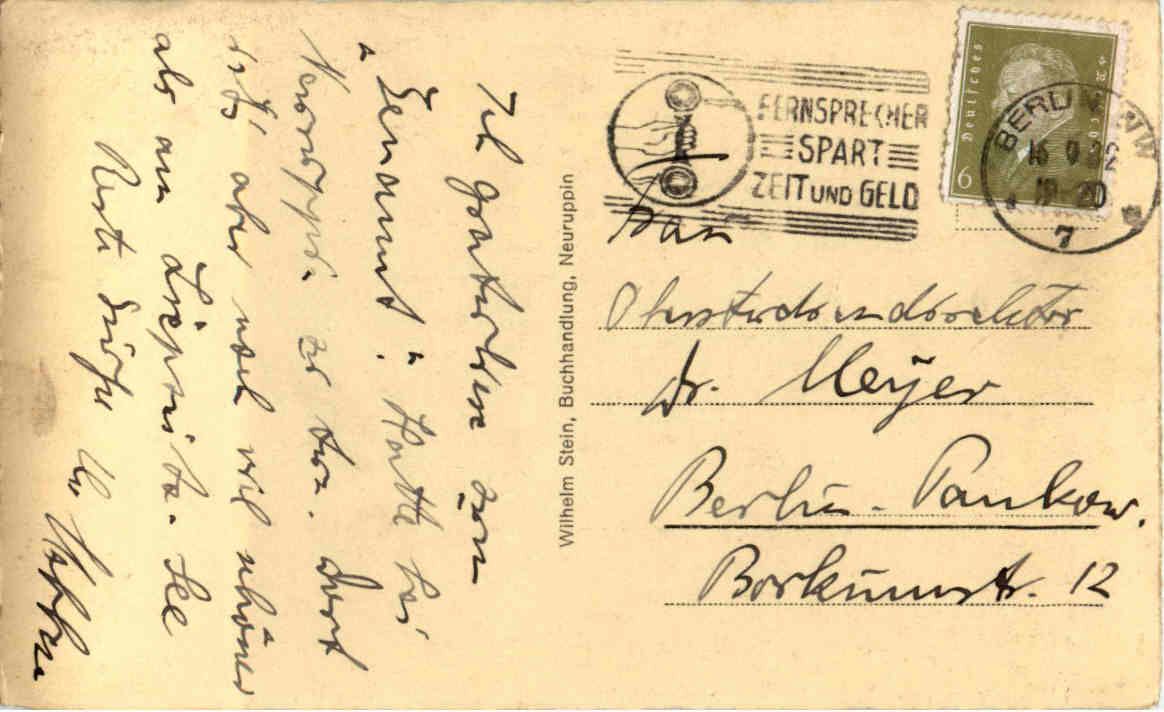 Ich gratuliere zum
Hatte bei
Neuruppin zu tun. Dort
ist's aber noch viel schöner
als am Liepnitz-See
Beste Grüße Ihr
Wilhelm Stein, Buchhandlung, Neuruppin
FERNSPRECHER
SPART
ZEIT UND GELD
Deutsches Reich
6
BERLIN NW
16 9
19-20
7
Frau
Oberstudiendirektor
Dr. Meyer
Berlin-Pankow.
Borkumstr. 12